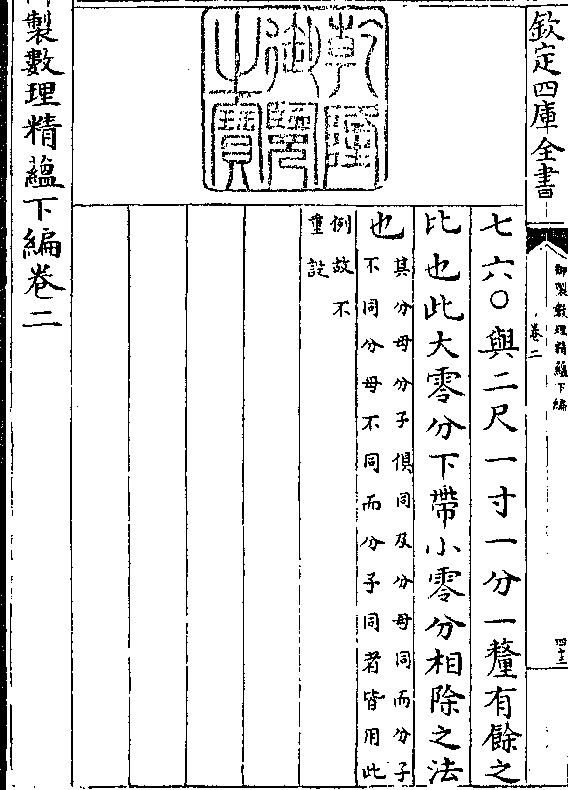 欽定四庫全書
御製數理精蘊下編
卷二
四十三
七六〇與二尺一寸一分一釐有餘之
比也此大零分下帶小零分相除之法
也
其分母分子俱同及分母同而分子
不同分母不同而分子同者皆用此
例故不
重設
乾隆
御覽
之寶
製數理精蘊下編卷二